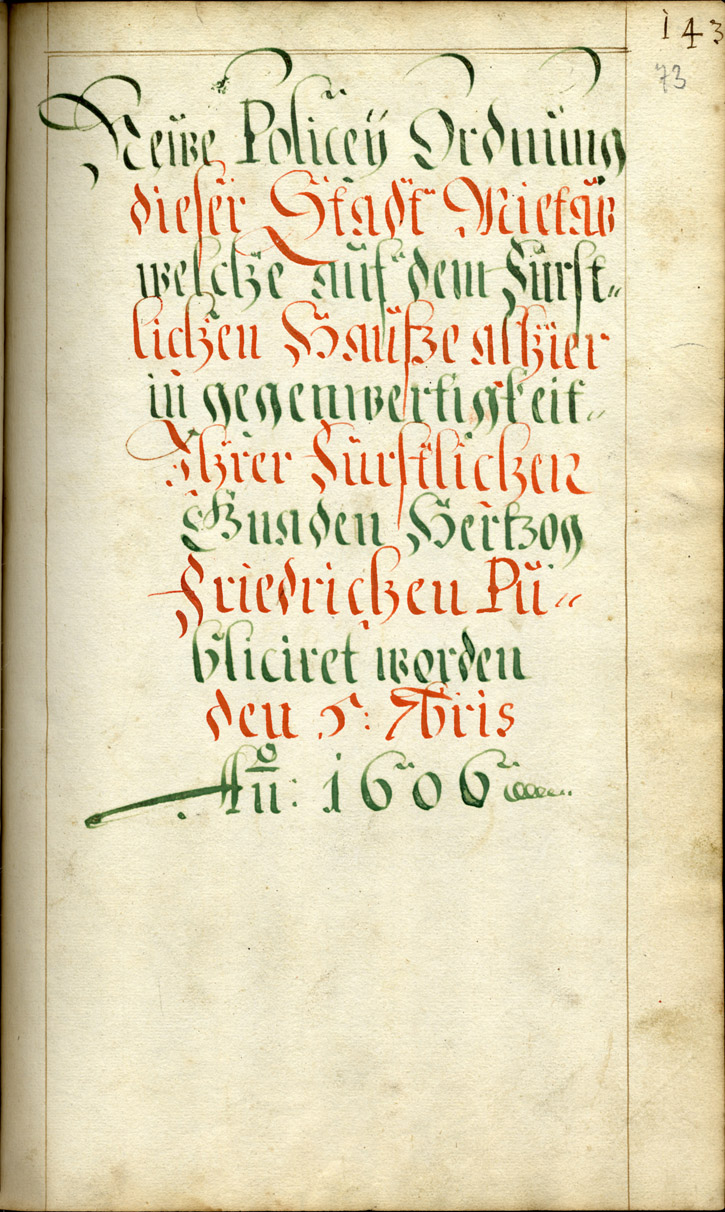 143
73
Neüwe Policeÿ Ordnüng
dieser Stadt Mietaw
welche aüf dem Fürst=
lichen Haüsze alhier
in gegenwertigkeit=
Ihrer Fürstlichen
Gnaden Hertzog
Friedrichen Pü=
bliciret worden
den 5: 7bris
Ao: 1606